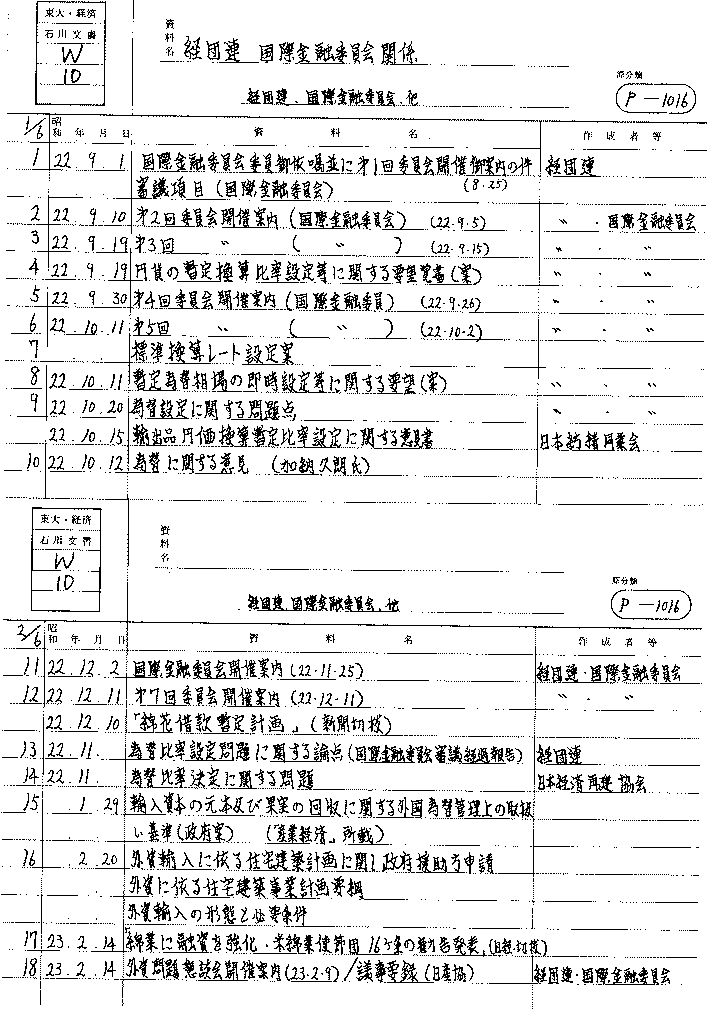 東大・経済
石川文書
W
10
資料名 経団連 国際金融委員会関係
経団連、国際金融委員会、他
原分類
P-1016
1/6 昭和 年 月 日 資 料 名 作 成 者 等
1 22 9 1 国際金融委員会委員御依嘱並に第1回委員会開催御案内の件 経団連
審議項目(国際金融委員会) (8.25)
2 22 9 10 第2回委員会開催案内(国際金融委員会) (22.9.5) 〃 ・国際金融委員会
3 22 9 19 第3回 〃 ( 〃 ) (22.9.15) 〃 ・ 〃
4 22 9 19 円貨の暫定換算比率設定等に関する要望覚書(案) 〃 ・ 〃
5 22 9 30 第4回委員会開催案内(国際金融委員) (22.9.26) 〃 ・ 〃
6 22.10.11 第5回 〃 ( 〃 ) (22.10.2) 〃 ・ 〃
7 標準換算レート設定案
8 22.10.11 暫定為替相場の即時設定等に関する要望(案) 〃 ・ 〃
9 22.10.20 為替設定に関する問題点 〃 ・ 〃
22.10.15 輸出品円価換算暫定比率設定に関する意見書 日本紡績同業会
10 22.10.12 為替に関する意見 (加納久朗氏)
東大・経済
石川文書
W
10
資料名
経団連、国際金融委員会、他
原分類
P-1016
2/6 昭和 年 月 日 資 料 名 作 成 者 等
11 22.12.2 国際金融委員会開催案内(22.11.25) 経団連・国際金融委員会
12 22.12.11 第7回委員会開催案内(22.12.11) 〃 ・ 〃
22.12.10 「綿花借款暫定計画」(新聞切抜)
13 22.11. 為替比率設定問題に関する論点(国際金融委員会審議経過報告) 経団連
14 22.11. 為替比率決定に関する問題 日本経済再建協会
15 1 29 輸入資本の元本及び果実の回収に関する外国為替管理上の取扱
い基準(政府案) (「産業経済」所載)
16 2 20 外資輸入に依る住宅建築計画に関し政府援助方申請
外資に依る住宅建築事業計画要綱
外資輸入の形態と必要条件
17 23.2.14 綿業に融資を強化・米綿業使節団16ヶ条の勧告発表,(日経・切抜)
18 23.2.14 外資問題懇談会開催案内(23.2.9)/議事要録(日産協) 経団連・国際金融委員会